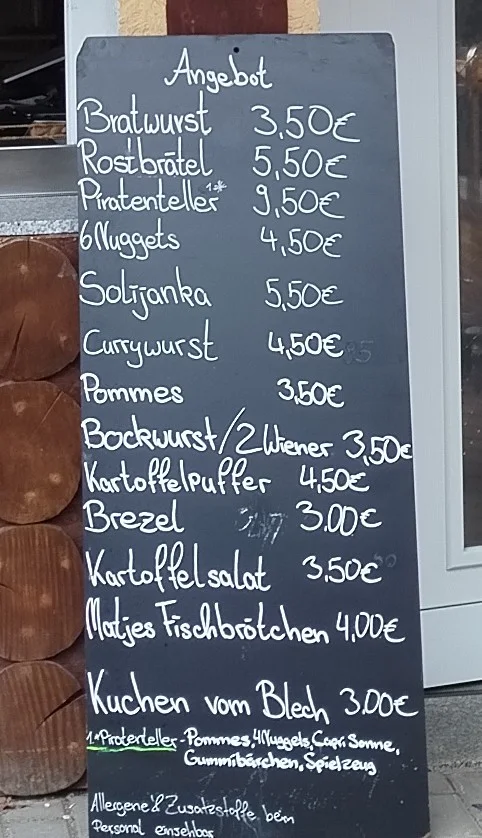 Angebot
Bratwurst 3,50€
Rostbrätel 5,50€
Piratenteller 1* 9,50€
6 Nuggets 4,50€
Solijanka 5,50€
Currywurst 4,50€
Pommes 3,50€
Bockwurst/2 Wiener 3,50€
Kartoffelpuffer 4,50€
Brezel 3.00€
Kartoffelsalat 3.50€
Matjes Fischbrötchen 4,00€
Kuchen vom Blech 3.00€
1.*Piratenteller - Pommes, 4 Nuggets, Capri Sonne,
Gummibärchen, Spielzeug
Allergene & Zusatzstoffe beim
Personal einsehbar